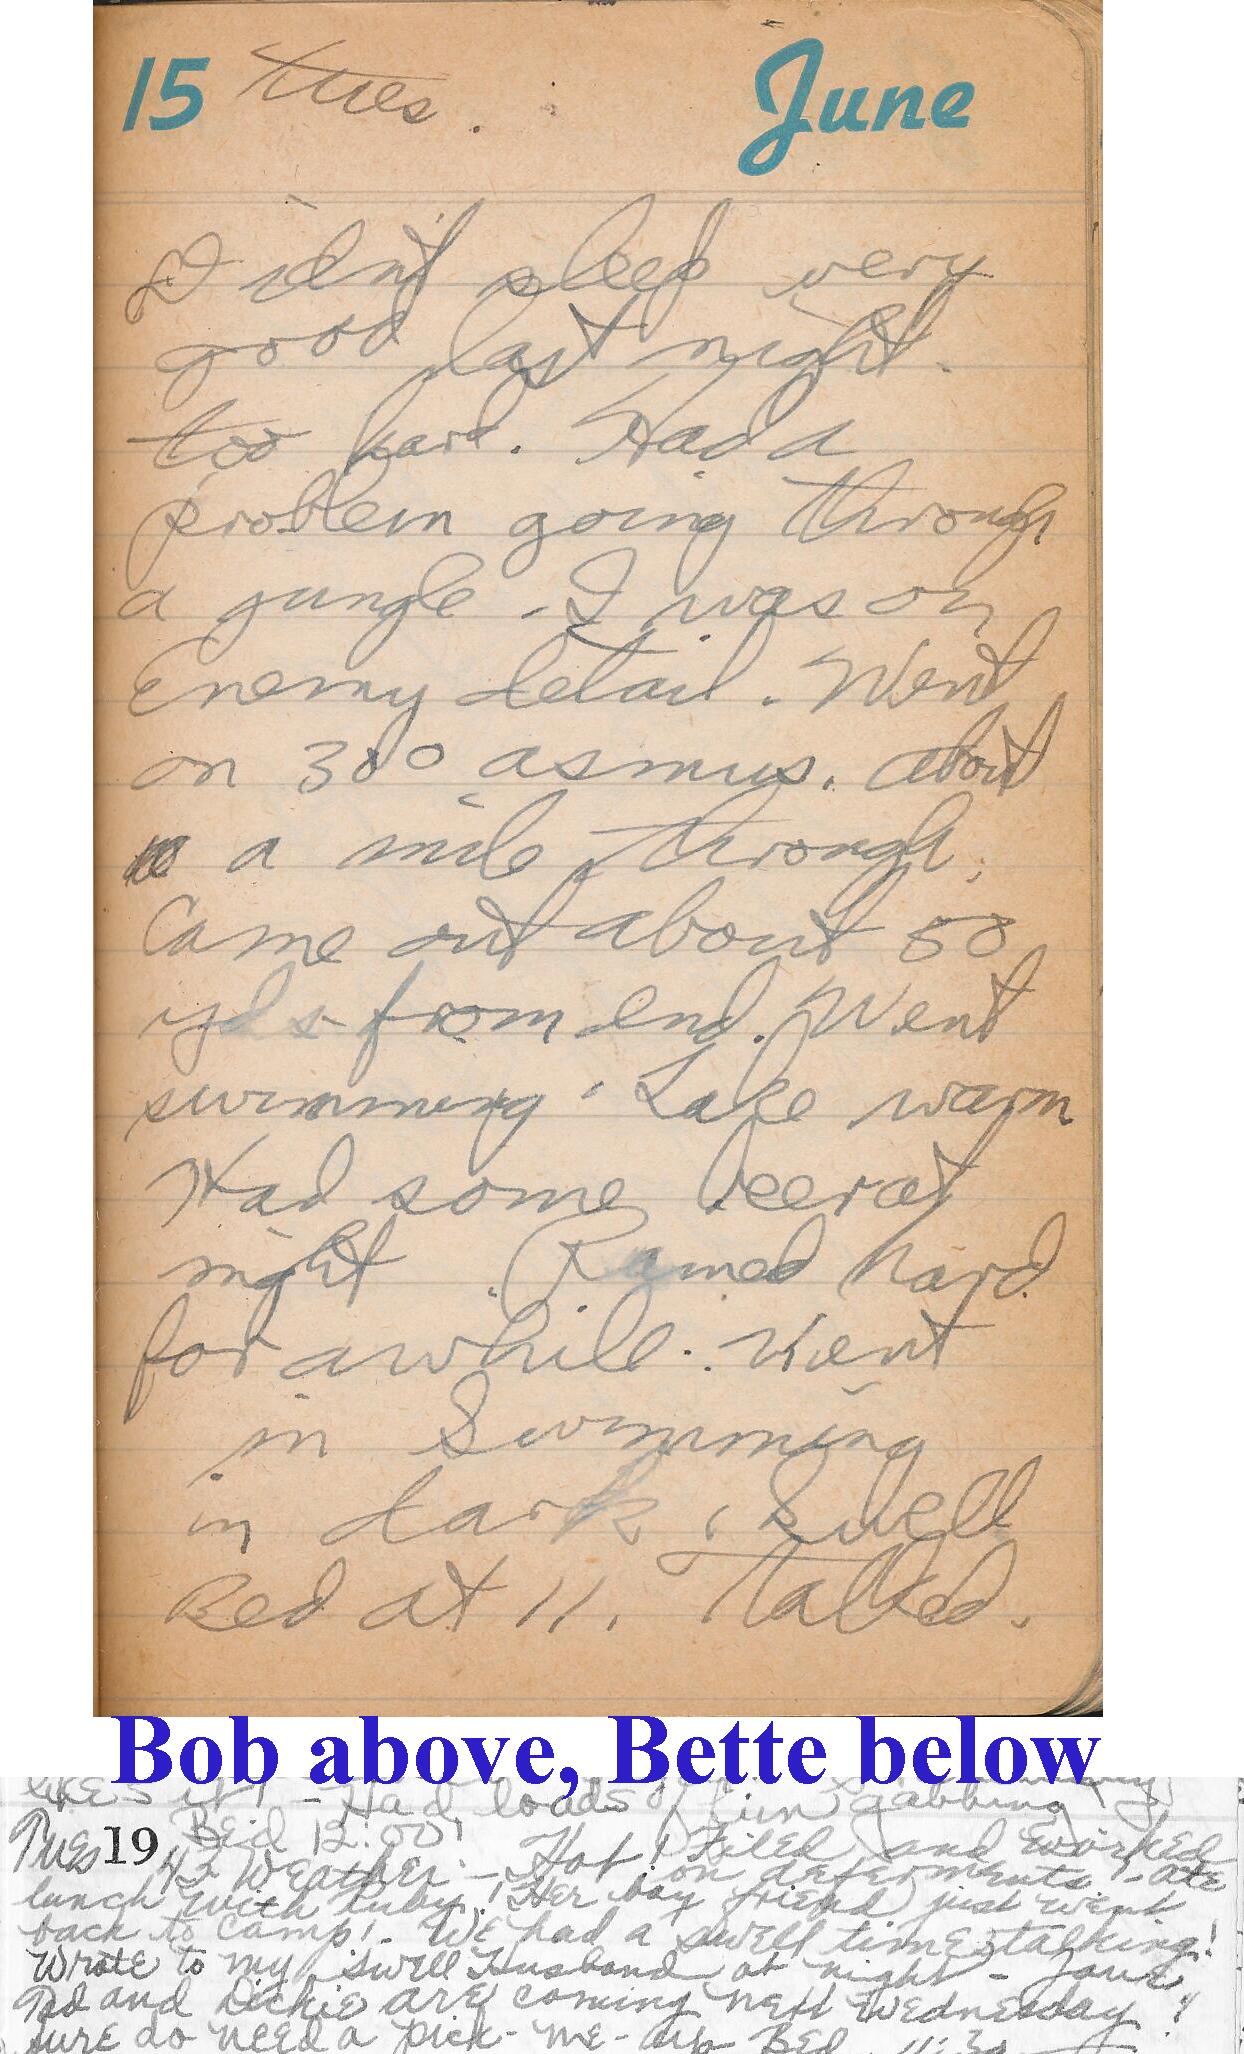 15 Tues. June
Didn't sleep very
good last night.
too hard. Had a
problem going through
a jungle. I was on
Enemy detail. Went
on 300 asmus. About
a mile through.
Came out about 50
yds from end. Went
swimming. Lake warm
Had some beer at
night. Rained hard
for awhile. Went
in Swimming
in dark. Swell
Bed at 11. Talked.
Bob above, Bette below
likes it! - Had loads fun gabbing
Bed 12:00!
Tues 1943 Weather - Hot! Filed and worked
on deferments! - ate
lunch with Ruby! Her boy friend just went
back to camp! - We had a swell time talking!
Wrote to my swell Husband at night -
Ted and Dickie are coming next Wednesday!
sure do need a pick-me-up Bed 11:30